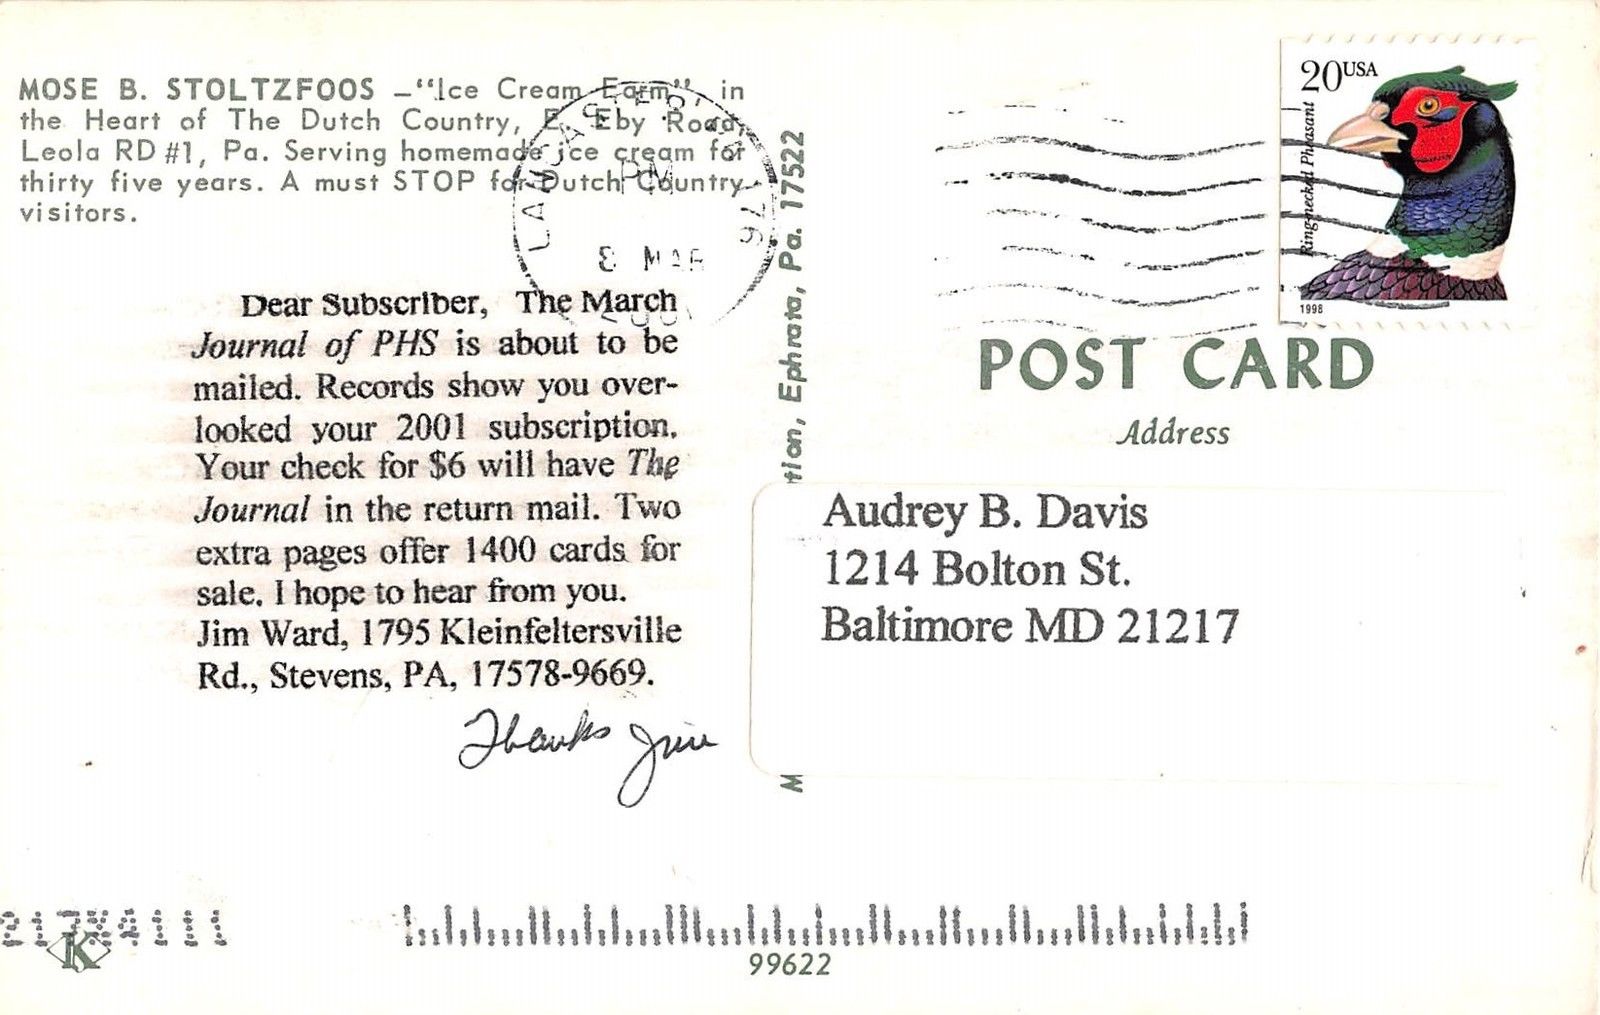 MOSE B. STOLTZFOOS –“Ice Cream Farm”, in
the Heart of The Dutch Country, E. Eby Road,
Leola RD #1, Pa. Serving homemade ice cream for
thirty five years. A must STOP for Dutch Country
visitors.
LANCASTER
PM
8 MAR
176
Dear Subscriber, The March
Journal of PHS is about to be
mailed. Records show you over-
looked your 2001 subscription.
Your check for $6 will have The
Journal in the return mail. Two
extra pages offer 1400 cards for
sale. I hope to hear from you.
Jim Ward, 1795 Kleinfeltersville
Rd., Stevens, PA, 17578-9669.
Thanks Jim
tion, Ephrata, Pa. 17522
20USA
Ring-necked Pheasant
1998
POST CARD
Address
Audrey B. Davis
1214 Bolton St.
Baltimore MD 21217
K
99622